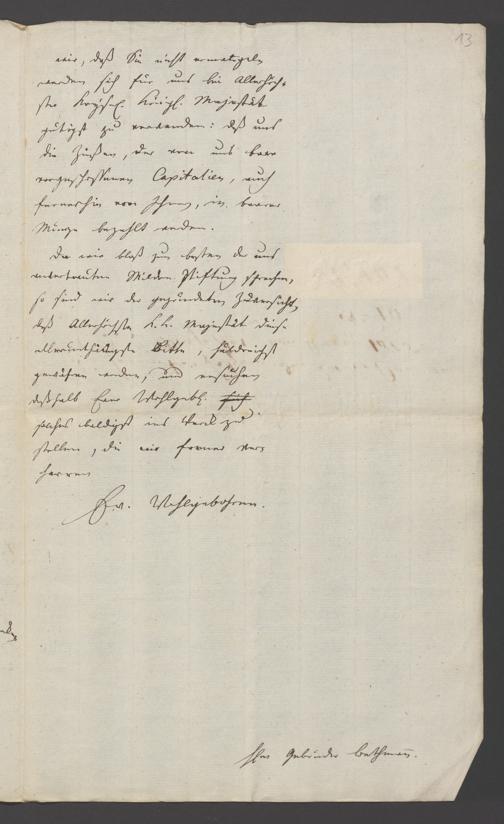 13
wir, daß Sie nicht ermangeln
werden sich für uns bei Allerhöch-
ster Kayserl. Königl. Majestät
gütigst zu verwenden: daß uns
die Zinßen, der von uns baar
vorgeschossenen Capitalien, auch
fernerhin von Ihnen, in baarer
Münze bezahlt werden.
Da wir bloß zum besten der uns
anvertrauten Milden Stiftung sprechen,
so sind wir der gegründeten Zuversicht,
daß Allerhöchste k. k. Majestät diese
allerunthänigste Bitte, huldreichst
gewähren werden, und ersuchen
deßhalb Euer Wohlgebl. sich
solches baldigst ins Werk zu
stellen, die wir ferner ver-
harren
Ew. Wohlgebohren.
Gebrüder Bethmann.